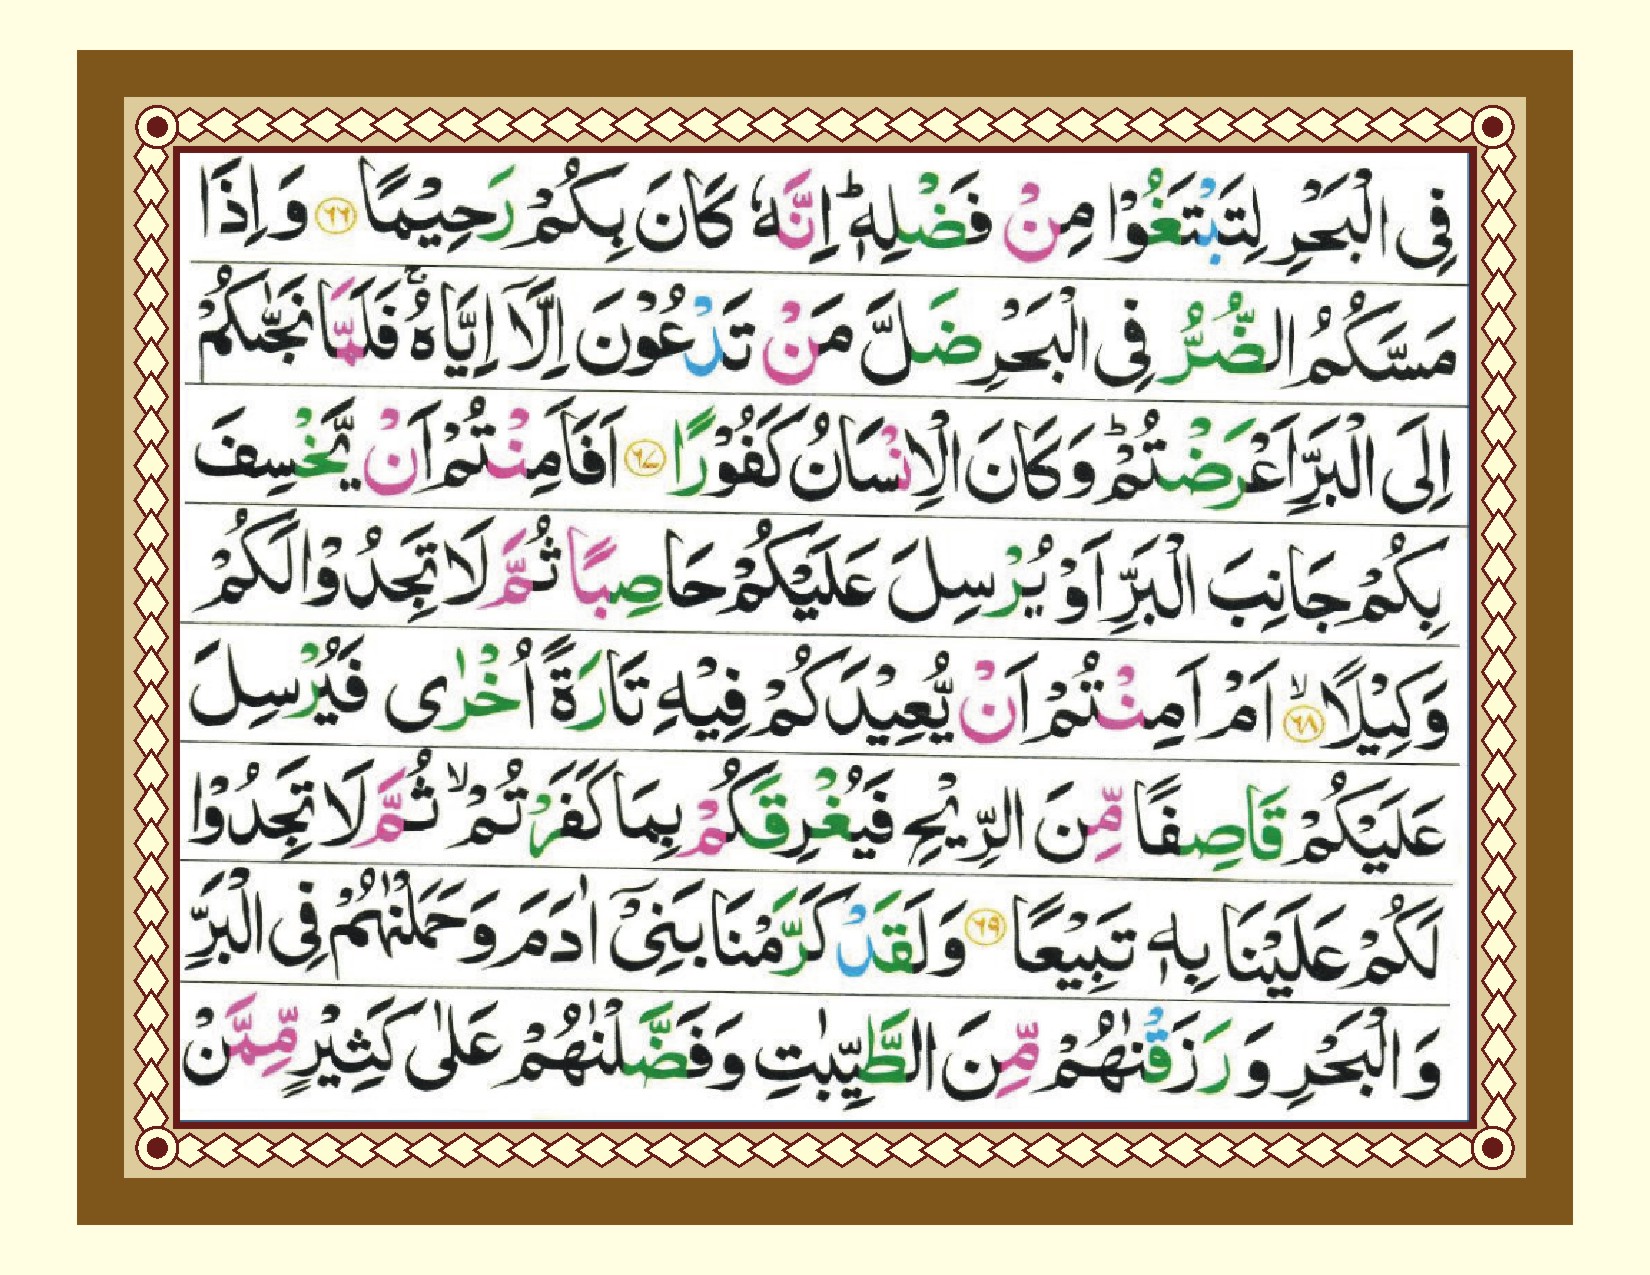 فِی الْبَحْرِ لِتَبْتَغُوْا مِنْ فَضْلِهٖ ؕ اِنَّهٗ كَانَ بِكُمْ رَحِیْمًا ﴿۶۶﴾ وَ اِذَا
مَسَّكُمُ الضُّرُّ فِی الْبَحْرِ ضَلَّ مَنْ تَدْعُوْنَ اِلَّاۤ اِیَّاهُ ۚ فَلَمَّا نَجّٰىكُمْ
اِلَی الْبَرِّ اَعْرَضْتُمْ ؕ وَ كَانَ الْاِنْسَانُ كَفُوْرًا ﴿۶۷﴾ اَفَاَمِنْتُمْ اَنْ یَّخْسِفَ
بِكُمْ جَانِبَ الْبَرِّ اَوْ یُرْسِلَ عَلَیْكُمْ حَاصِبًا ثُمَّ لَا تَجِدُوْا لَكُمْ
وَكِیْلًا ﴿۶۸﴾ۙ اَمْ اَمِنْتُمْ اَنْ یُّعِیْدَكُمْ فِیْهِ تَارَةً اُخْرٰی فَیُرْسِلَ
عَلَیْكُمْ قَاصِفًا مِّنَ الرِّیْحِ فَیُغْرِقَكُمْ بِمَا كَفَرْتُمْ ۙ ثُمَّ لَا تَجِدُوْا
لَكُمْ عَلَیْنَا بِهٖ تَبِیْعًا ﴿۶۹﴾ وَ لَقَدْ كَرَّمْنَا بَنِیْۤ اٰدَمَ وَ حَمَلْنٰهُمْ فِی الْبَرِّ
وَ الْبَحْرِ وَ رَزَقْنٰهُمْ مِّنَ الطَّیِّبٰتِ وَ فَضَّلْنٰهُمْ عَلٰی كَثِیْرٍ مِّمَّنْ